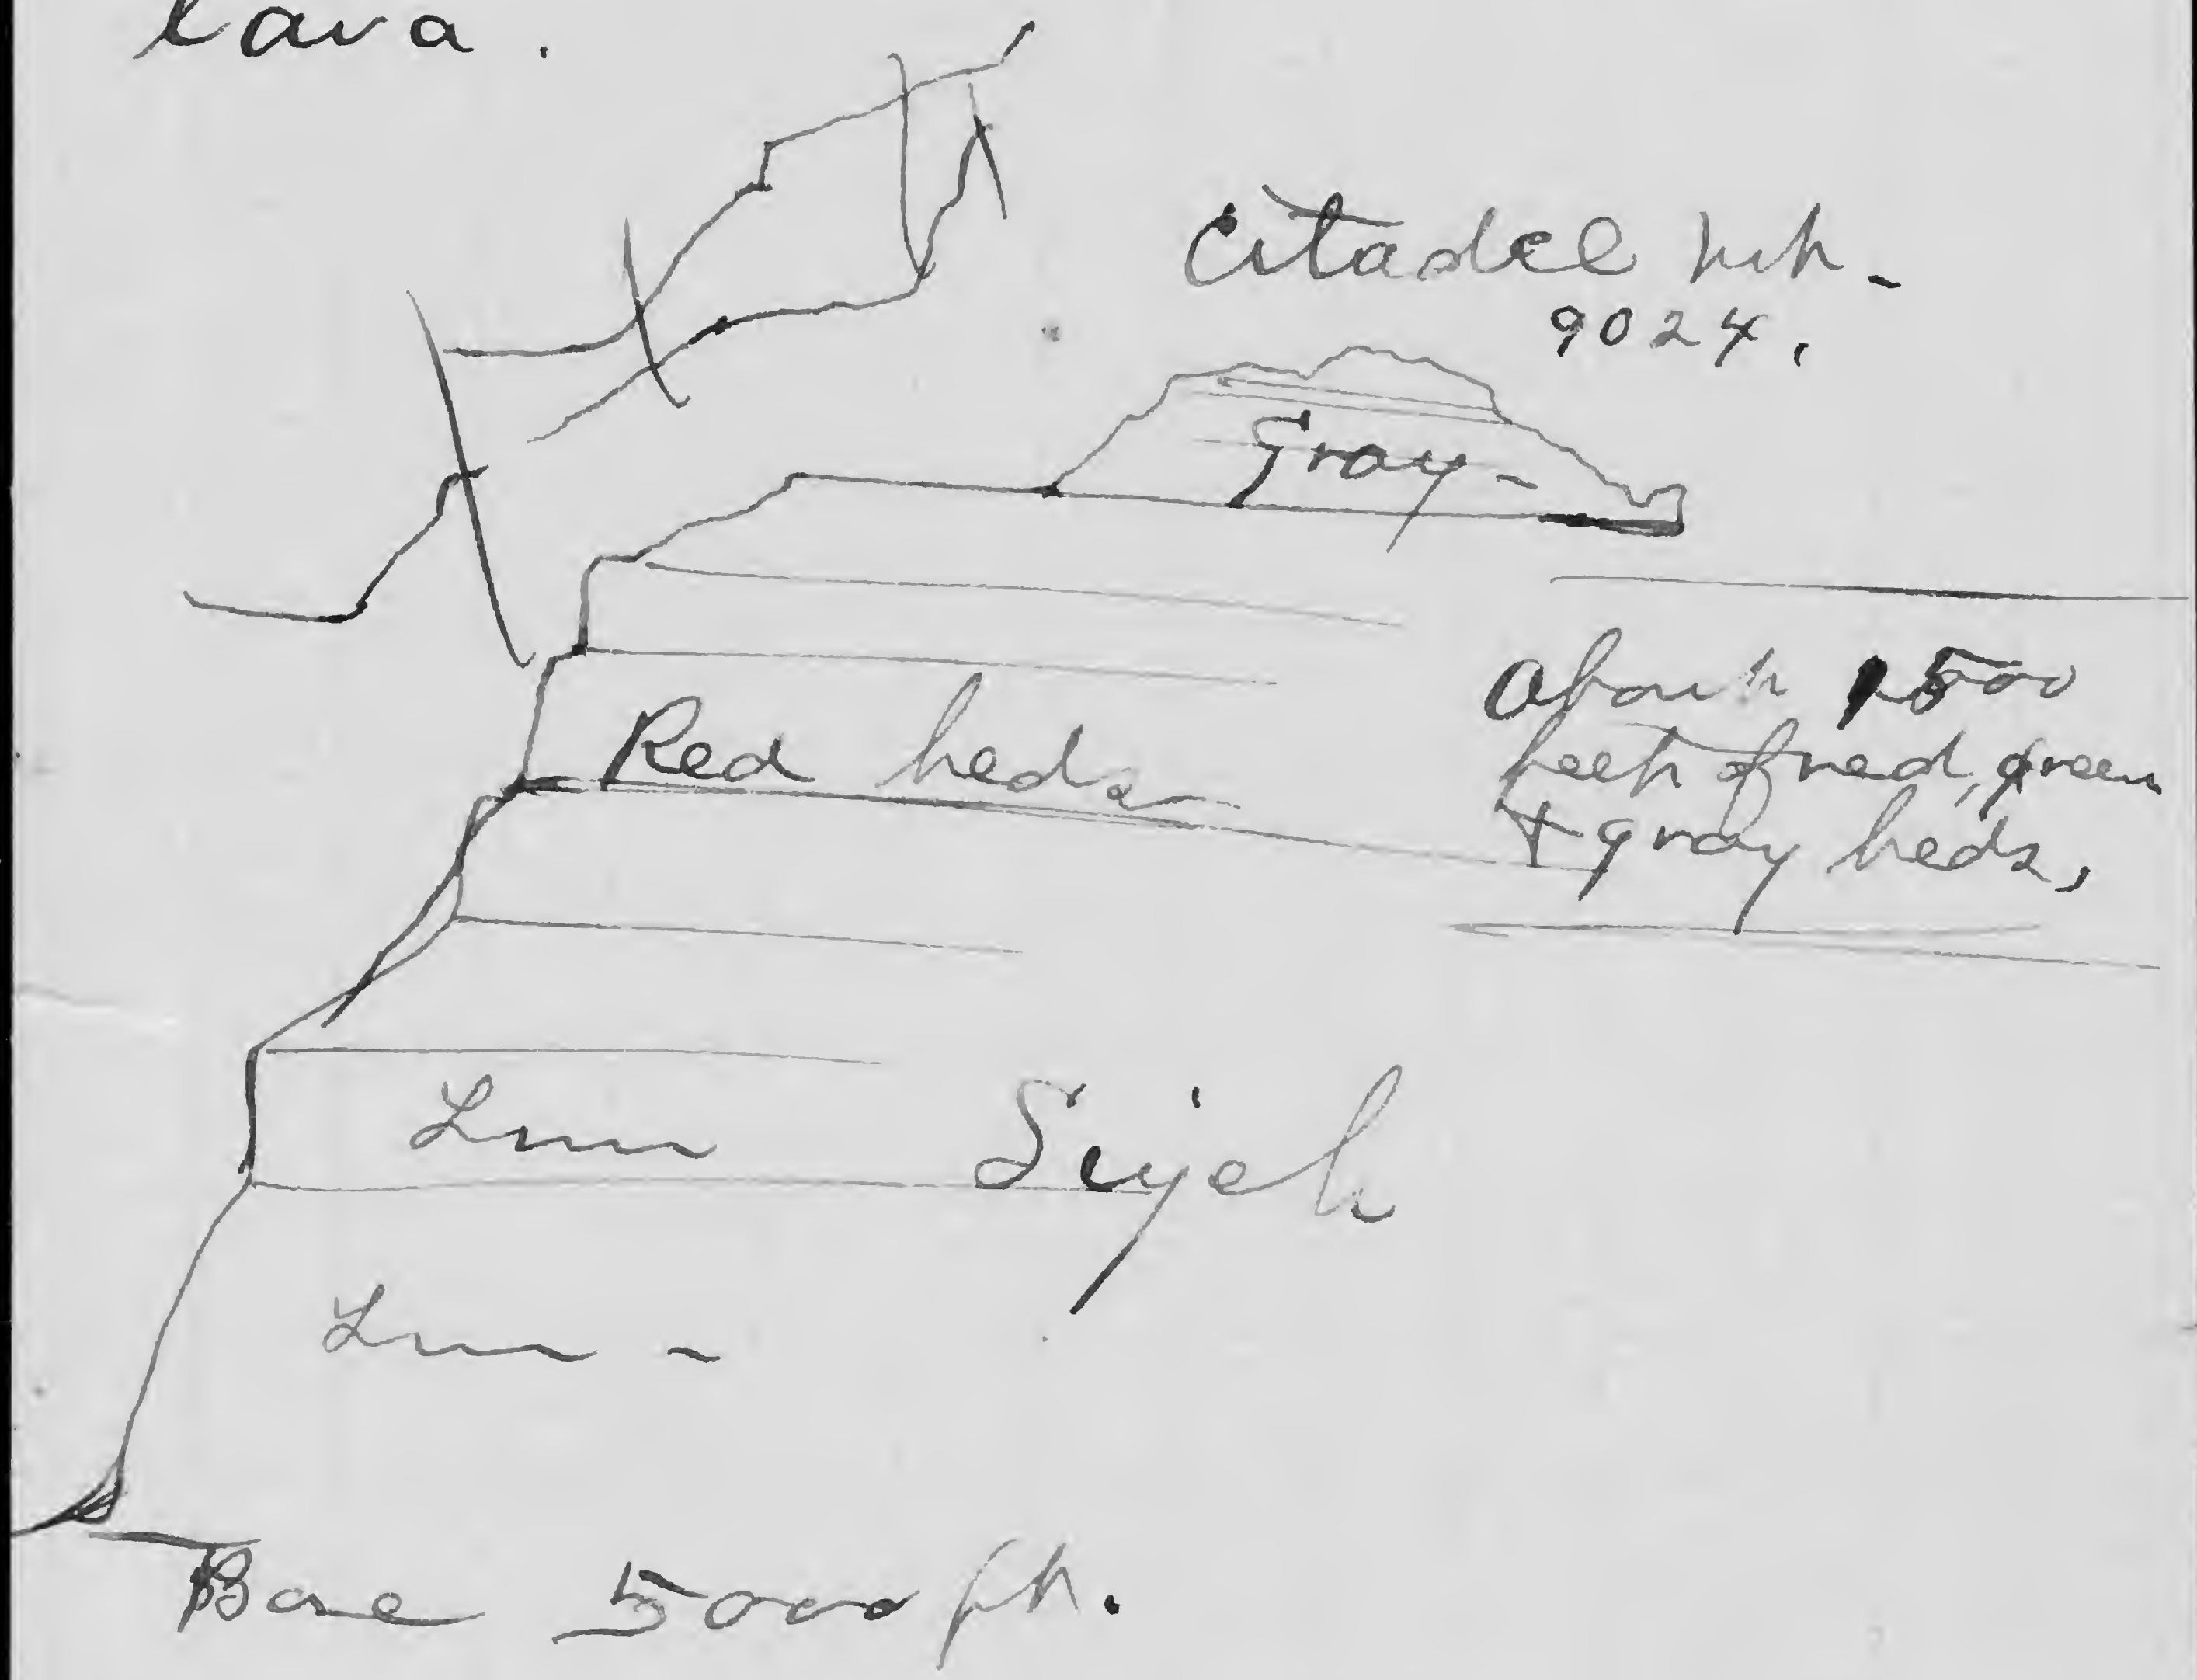 lava.
Citadel Mt.
9024.
Gray-
About 1500
feet of red, green
+ gray beds,
Red beds
Lim
Siyeh
Lim -
Base 5000 ft.